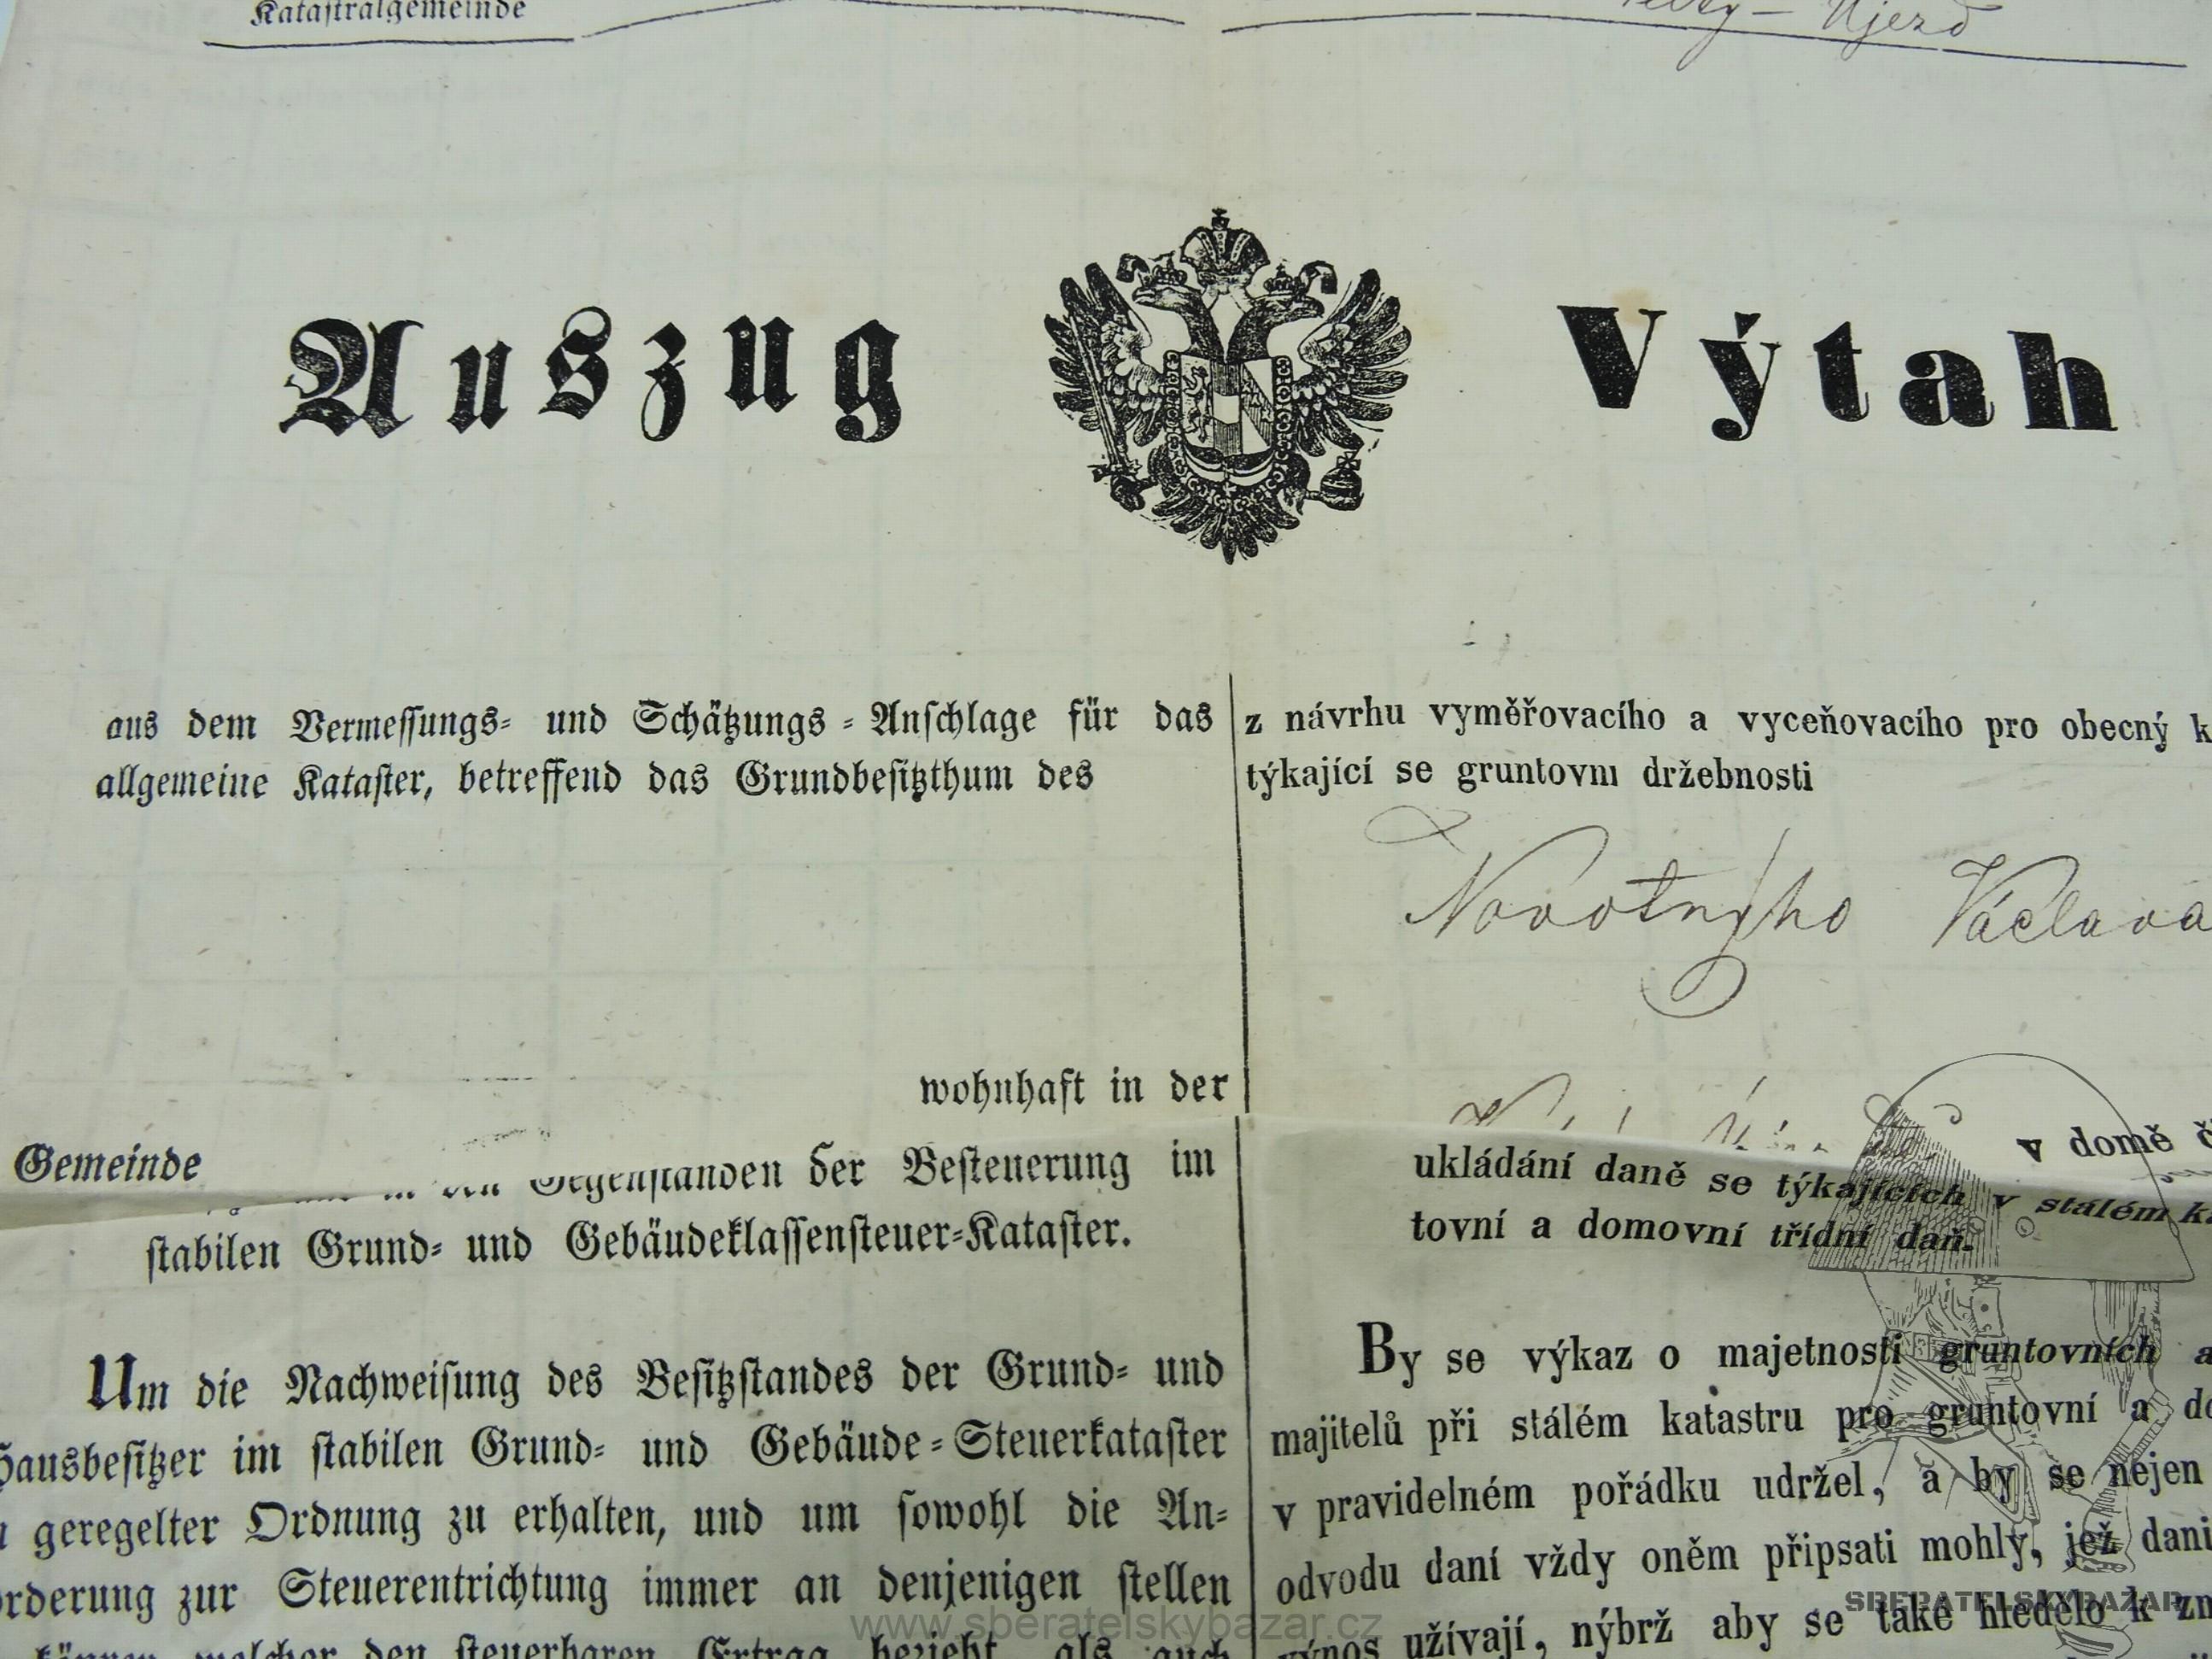 Katastralgemeinde
Ujezd
Auszug
Výtah
aus dem Vermessungs- und Schätzungs-Anschlage für das
allgemeine Kataster, betreffend das Grundbesitzthum des
z návrhu vyměřovacího a vyceňovacího pro obecný k
týkající se gruntovni držebnosti
Novotnýho Václava
wohnhaft in der
Gemeinde
v domě č
Gegenständen der Besteuerung im
stabilen Grund- und Gebäudeklassensteuer-Kataster.
ukládání daně se týkajících v stálém ka
tovní a domovní třídní daň.
Um die Nachweisung des Besitzstandes der Grund- und
Hausbesitzer im stabilen Grund- und Gebäude-Steuerkataster
geregelter Ordnung zu erhalten, und um sowohl die An-
orderung zur Steuerentrichtung immer an denjenigen stellen
können, welcher den steuerbaren Ertrag bezieht, als auch
By se výkaz o majetnosti gruntovních a
majitelů při stálém katastru pro gruntovní a do
v pravidelném pořádku udržel, a by se nejen
odvodu daní vždy oněm připsati mohly, jež dani
výnos užívají, nýbrž aby se také hledělo k zm
SBERATELSKYBAZAR
www.sberatelskybazar.cz